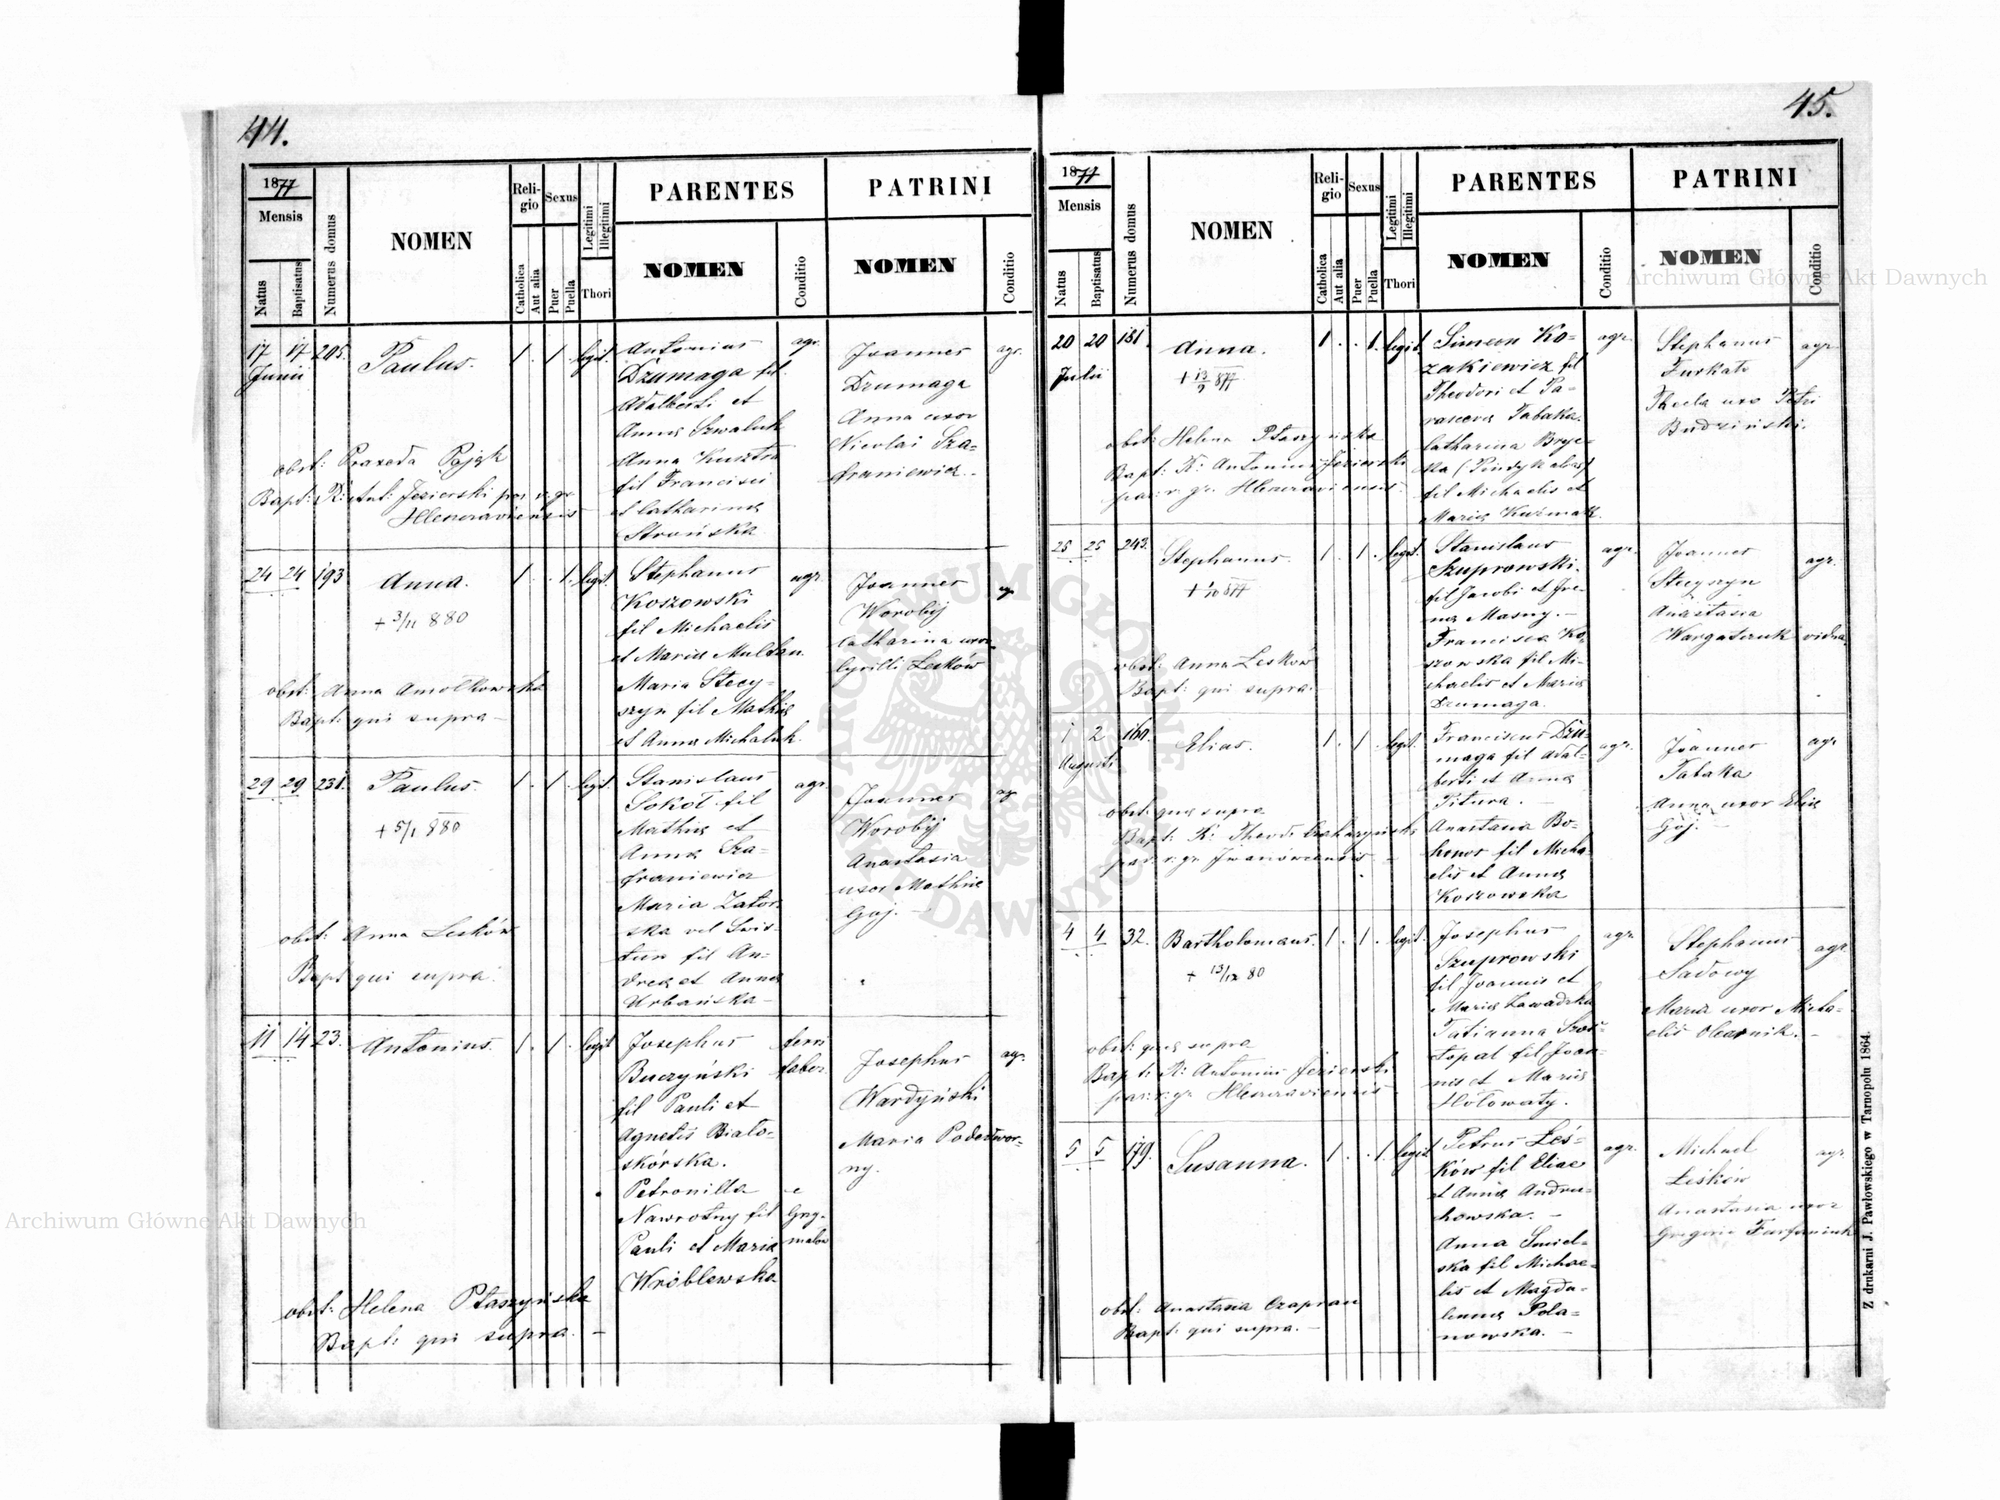 44.
1877
Mensis
Natus
Baptisatus
Numerus domus
NOMEN
Religio
Catholica
Aut alia
Sexus
Puer
Puella
Legitimi
Illegitimi
Thori
PARENTES
NOMEN
Conditio
PATRINI
NOMEN
Conditio
17 17 205. Paulus. 1 . 1 legit.
Junii
Antonius agr.
Dzumaga fil.
Adalberti et
Annæ Szwaluk
Anna Kusztra
fil Francisci
et Catharinæ
Strońska
Joannes agr.
Dzumaga
Anna uxor
Nicolai Sza-
franiewicz.
obst: Praxeda Pająk
Bapt: R: Ant: Jezierski par. r. gr.
24 24 193 Anna. 1 . . 1. legit.
+ 3/11 880
Stephanus agr.
Koszowski
fil Michaelis
et Mariæ Multan
Maria Stecy-
szyn fil Mathiæ
et Annæ Michaluk.
Joannes agr
Worobij
Catharina uxor
Cyrilli Leśków
obst: Anna
Bapt: qui supra –
29 29 231. Paulus. 1 . 1 . legit.
+ 5/1 880
Stanislaus agr.
Sokoł fil
Mathiæ et
Annæ Sza-
franiewicz
Maria Zator-
ska vel Świs-
tun fil An-
dreæ et Annæ
Urbańska –
Joannes agr
Worobij
Anastasia
uxor Mathiæ
Goj. –
obst: Anna Leśków
Bapt: qui supra.
11 14 23. Antonius. 1 . 1 . legit
Josephus ferri
Buczyński faber
fil Pauli et
Agnetis Biało-
skórska.
Petronilla e
Nawrotny fil Grzy-
Pauli et Mariæ małow
Wróblewska
Josephus agr.
Wardyński
Maria Podedwor-
ny.
obst: Helena Ptaszyńska
Bapt: qui supra. –
45.
1877
Mensis
Natus
Baptisatus
Numerus domus
NOMEN
Religio
Catholica
Aut alia
Sexus
Puer
Puella
Legitimi
Illegitimi
Thori
PARENTES
NOMEN
Conditio
PATRINI
NOMEN
Conditio
20 20 181. Anna. 1 . . 1. legit.
Julii
+ 13/9 877
Simeon Ko- agr.
zakiewicz fil
Theodori et Pa-
rascevæ Tabaka.
Catharina Bryc-
ka
fil Michaelis et
Mariæ Kuźmak.
Stephanus agr
Furkało
Thecla uxo Petri
Budziński.
obst: Helena Ptaszyńska
Bapt: R: Antonius Jezierski
par: r. gr.
25 25 243. Stephanus. 1. . 1. legit.
+ 1/10 877
Stanislaus agr.
Szuprowski.
fil Jacobi et Ire-
næ Masny. –
Francisca Ko-
szowska fil Mi-
chaelis et Mariæ
Dzumaga.
Joannes agr.
Stecyszyn
Anastasia
Wargatiuk vidua
obst: Anna Leśków
Bapt: qui supra –
1 2 160. Elias. 1. . 1 . legit.
Augusti
Franciscus Dzu- agr.
maga fil Adal-
berti et Annæ
Pitura. –
Anastasia Bo-
honos fil Micha-
elis et Annæ
Koszowska
Joannes agr
Tabaka
Anna uxor Eliæ
Goj. –
obst: quæ supra
4 4 32. Bartholomæus. 1 . 1 . legit.
+ 13/12 80
Josephus agr.
Szuprowski
fil Joannis et
Mariæ Zawadzka
Tatianna Szos-
topal fil Joan-
nis et Mariæ
Hołowaty.
Stephanus agr.
Sadowy
Maria uxor Micha-
elis Olearnik. –
obst: quæ supra
Bapt: R: Antonius Jezierski
par: r. gr.
5 5 179. Susanna. 1. . 1. legit
Petrus Leś- agr.
ków fil Eliae
et Annæ Andru-
chowska. –
Anna Smiel-
ska fil Michae-
lis et Magda-
lenæ Pola-
nowska. –
Michael agr.
Leśków
Anastasia uxor
Gregorii
obst: Anastasia Czapran
Bapt: qui supra. –
Z drukarni J. Pawłowskiego w Tarnopolu 1864.
Archiwum Główne Akt Dawnych
Archiwum Główne Akt Dawnych
ARCHIWUM GŁÓWNE AKT DAWNYCH